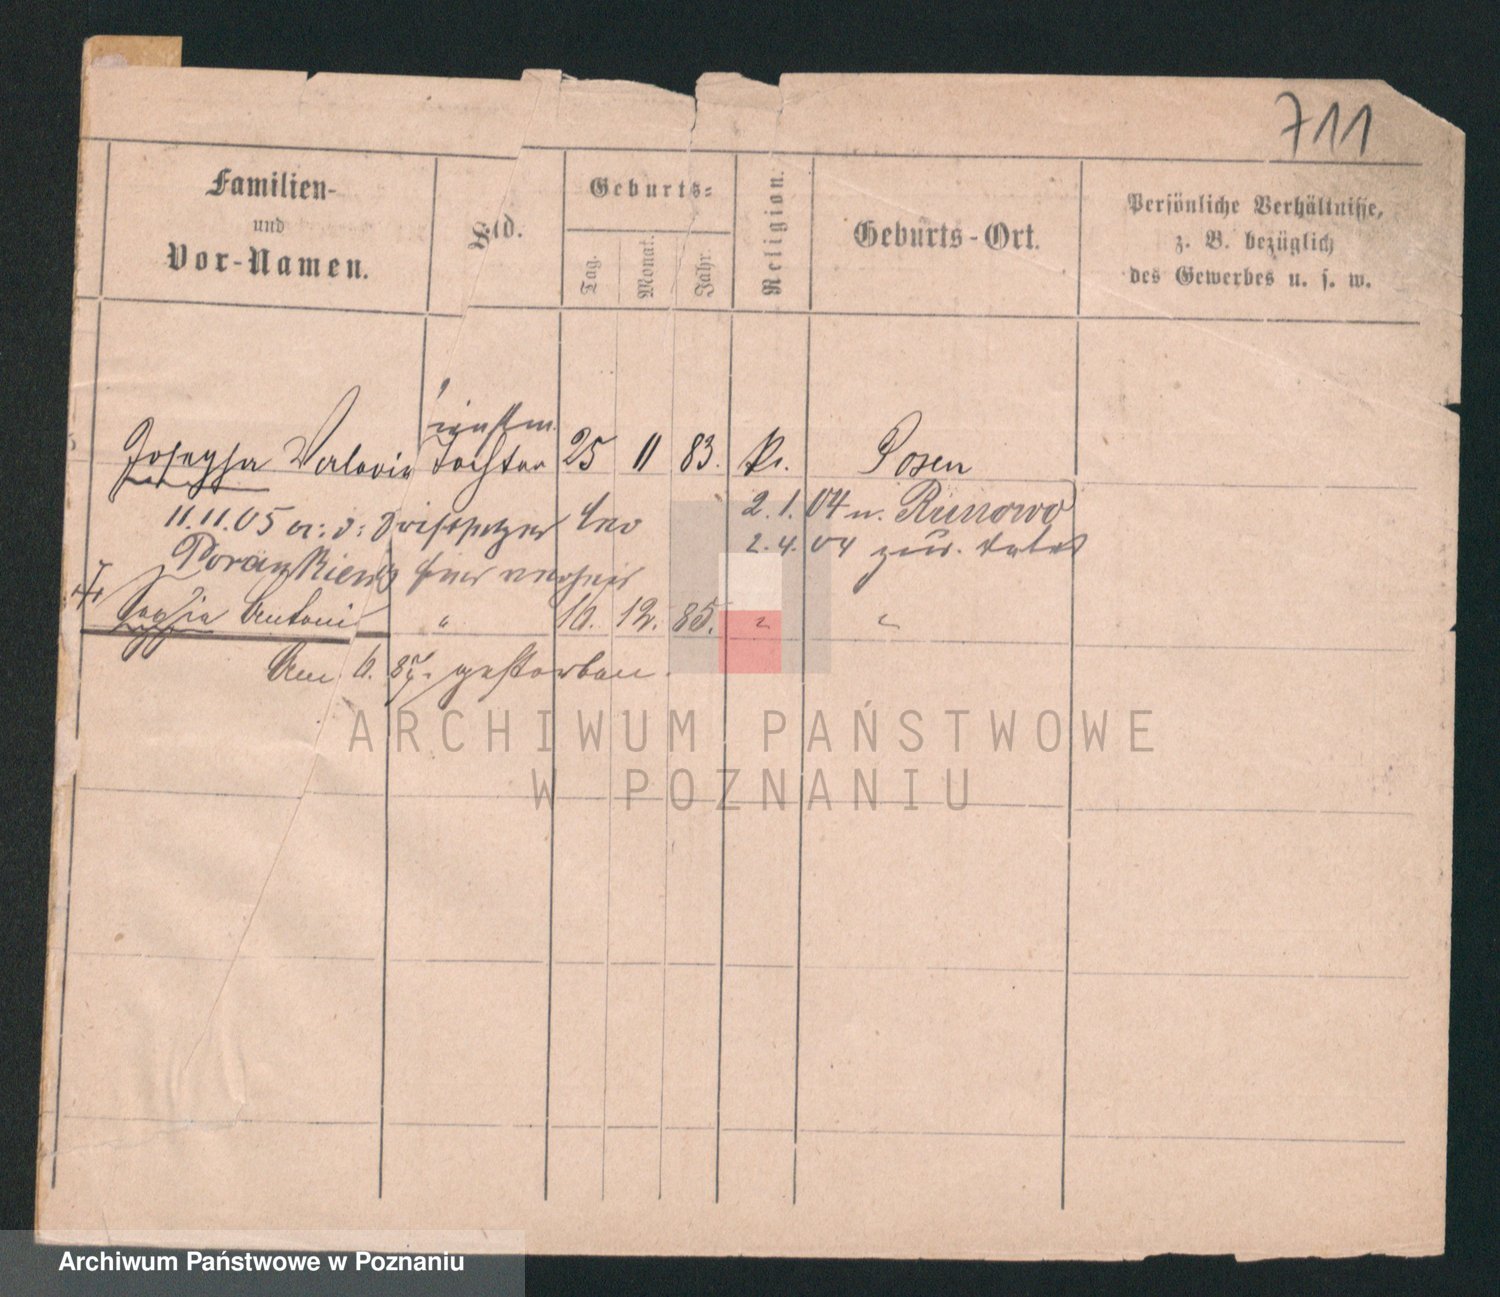 711
Familien-
und
Vor-Namen.
Std.
Geburts-
Tag.
Monat.
Jahr.
Religion.
Geburts-Ort.
Persönliche Verhältnisse,
z. B. bezüglich
des Gewerbes u. s. w.
Josepha Valeria Tochter 25 11 83. k. Posen
11.11.05 a: d: Leo
2.1.04 n. Runowo
2.4.04 zur.
Antoni " 10. 12. 85. " "
Am 6. 87. gestorben.
ARCHIWUM PAŃSTWOWE
W POZNANIU
Archiwum Państwowe w Poznaniu